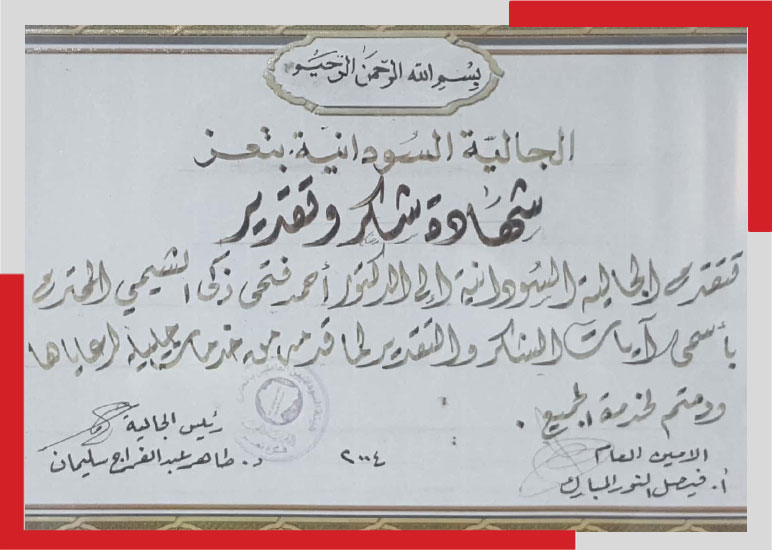 بسم الله الرحمن الرحيم
الجالية السودانية بتعز
شهادة شكر وتقدير
تتقدم الجالية السودانية إلى الدكتور أحمد فتحي زكي الشيمي المحترم
بأسمى آيات الشكر والتقدير لما قدمه من خدمات جليلة لرعاياها
ودمتم لخدمة الجميع .
رئيس الجالية
د. طاهر عبد الفراج سليمان
٢٠٠٤
الامين العام
أ. فيصل النور المبارك